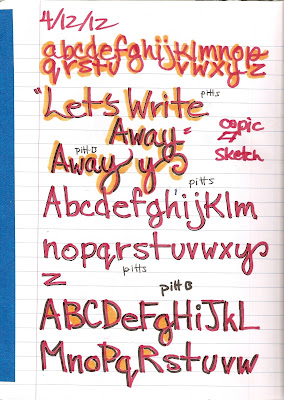 4/12/12
abcdefghijklmnop
qrstu vwxyz
"Let's Write
pitt s
Away"
copic
&
Sketch
pitt B
Away y
pitt s
Abcdefghijklm
nopqrstuvwxy
z
pitt s
pitt B
ABCDeFgHiJkL
MnoPqRstuvw